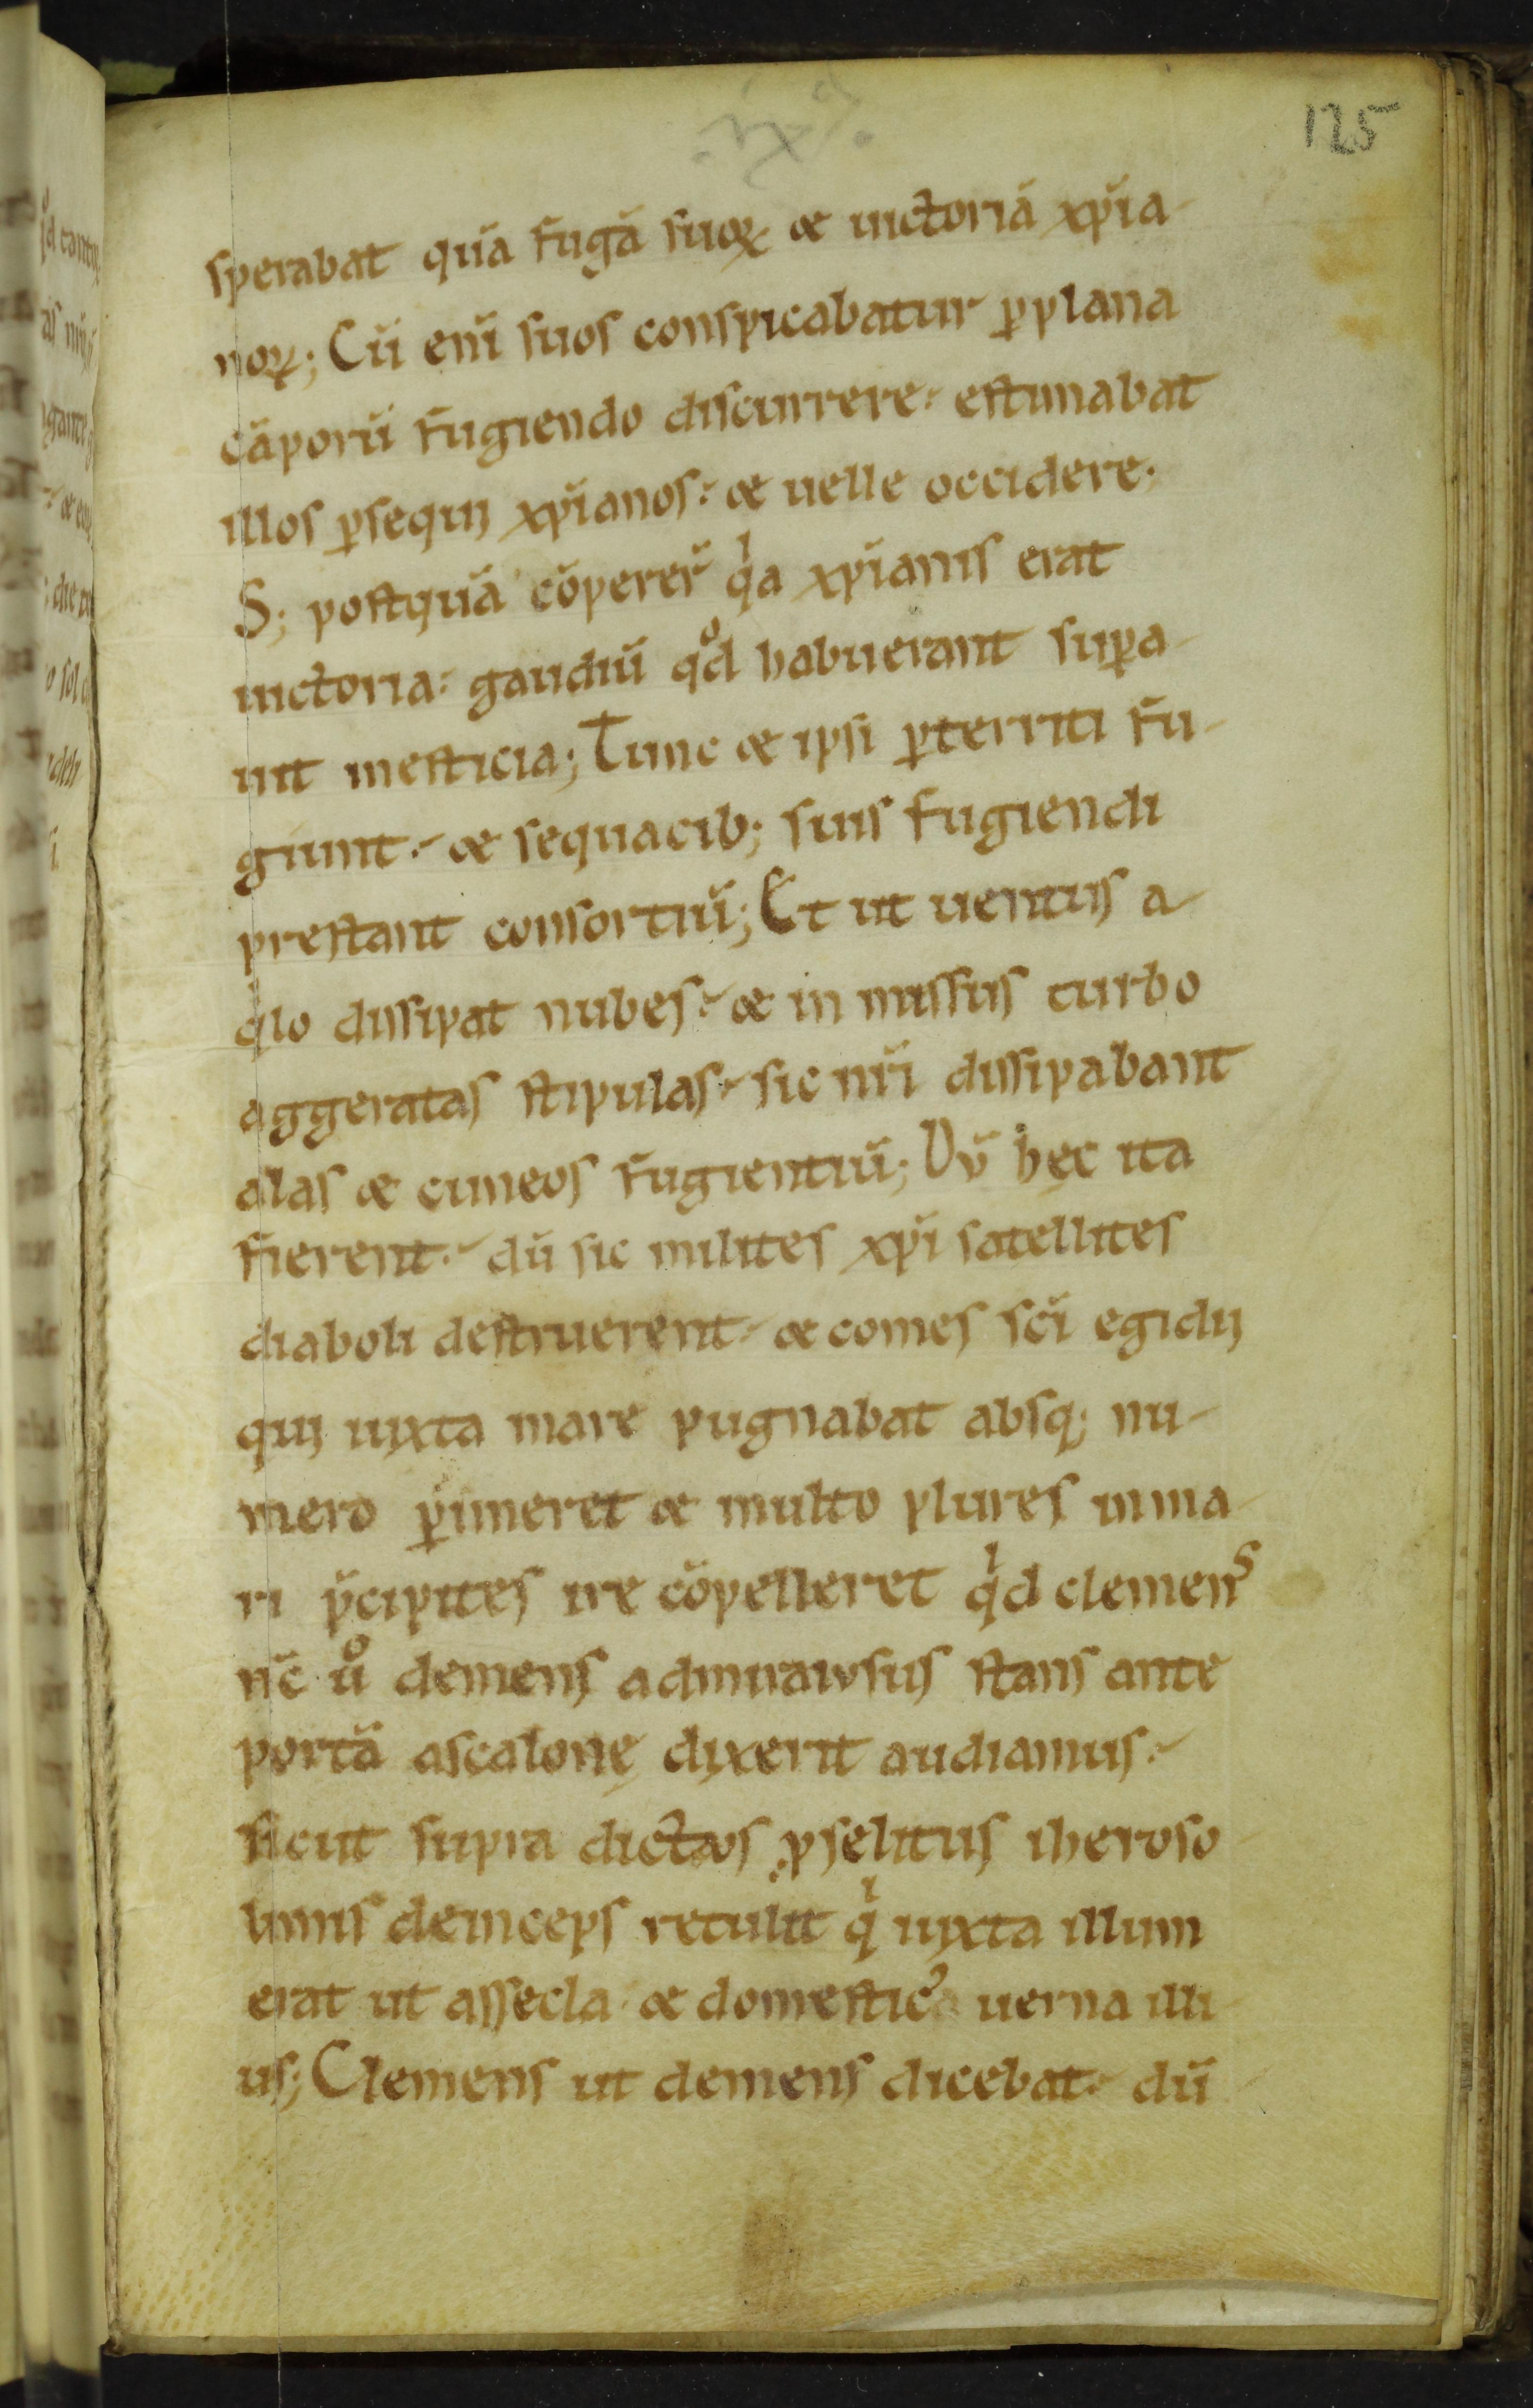 125
sperabat quā fugā suoꝝ & uictoriā xp̄ia-
noꝝ; Cū eni̅ suos conspicabatur ꝑ plana
cāporū fugiendo discurrere. estimabat
illos ꝑsequij xp̄ianos. & uelle occidere.
S; postquā cōperer̄ qͥa xp̄ianis erat
uictoria. gaudiū qͦd habuerant suꝑa-
uit mesticia; Tunc & ipsi ꝑterriti fu-
giunt. & sequacib; suis fugiendi
prestant consortiū; Et ut uentus a-
qͥlo dissipat nubes. & in missus turbo
aggeratas stipulas. sic nr̄i dissipabant
alas & cuneos fugientiū; Dv̄ hęc ita
fierent. dū sic milites xp̄i satellites
diaboli destruerent. & comes sc̄i egidij
quj iuxta mare pugnabat absq; nu-
mero ꝑimeret & multo plures in ma-
ri p̄cipites ire cōpelleret qͥd clemens
nc̄ uͦ demens admirauisus stans ante
portā ascalonę dixerit audiamus.
sicut supra dictus ꝓselitus iheroso-
limis deinceps retulit qͥ iuxta illum
erat ut assecla & domesticꝰ uerna illi-
us; Clemens ut demens dicebat. dū